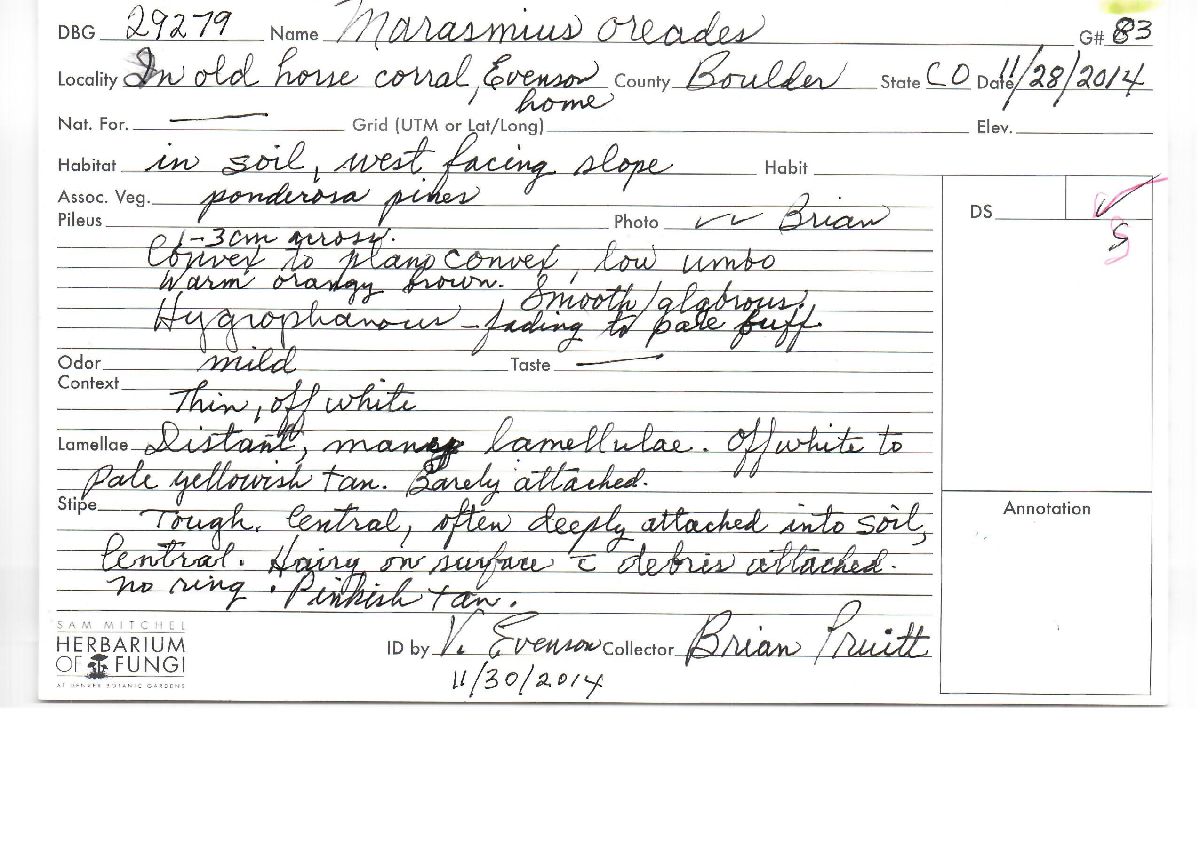 DBG 29279 Name Marasmius oreades G# 83
Locality In old horse corral, Evenson home County Boulder State CO Date 11/28/2014
Nat. For. — Grid (UTM or Lat/Long) Elev.
Habitat in soil, west facing slope Habit
Assoc. Veg. ponderosa pines
Pileus Photo ✓✓ Brian DS ✓
S
1-3cm across.
Convex to plano convex, low umbo
Warm orangy brown. Smooth/glabrous.
Hygrophanous - fading to pale buff.
Odor mild Taste —
Context
Thin, off white
Lamellae Distant, many lamellulae. Off white to
pale yellowish tan. Barely attached.
Stipe
Tough. Central, often deeply attached into soil,
Central. Hairy on surface c̄ debris attached.
no ring. Pinkish tan.
Annotation
SAM MITCHEL
HERBARIUM
OF FUNGI
AT DENVER BOTANIC GARDENS
ID by V. Evenson Collector Brian Pruitt
11/30/2014